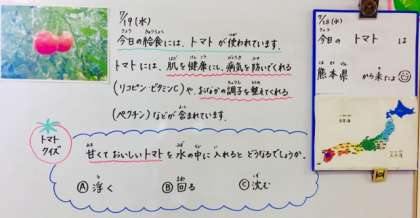 7/19(水)
今日の給食には、トマトが使われています。
トマトには、肌を健康にし、病気を防いでくれる
(リコピン・ビタミンC)や、おなかの調子を整えてくれる
(ペクチン)などが含まれています。
トマト
クイズ
甘くておいしいトマトを水の中に入れるとどうなるでしょうか。
Ⓐ 浮く Ⓑ 回る Ⓒ 沈む
今日の トマト は
熊本県 から来たよ